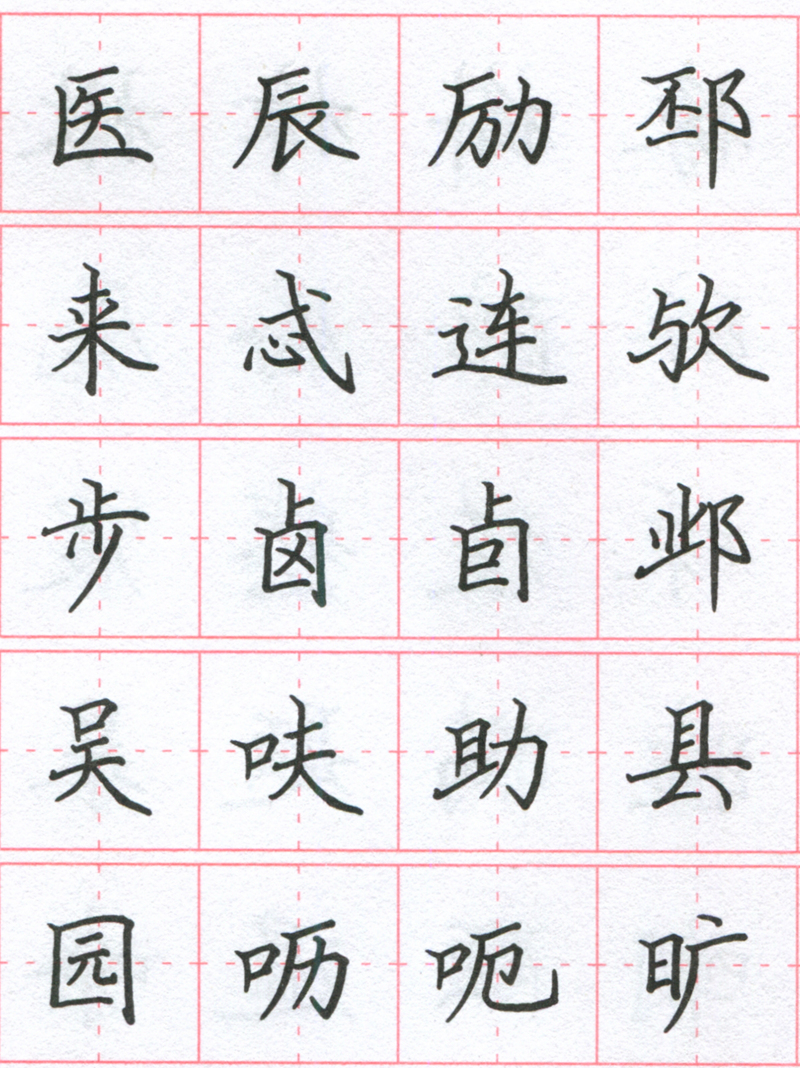 医辰励邳
来忒连欤
步卤卣邺
吴呋助县
园呖呃旷